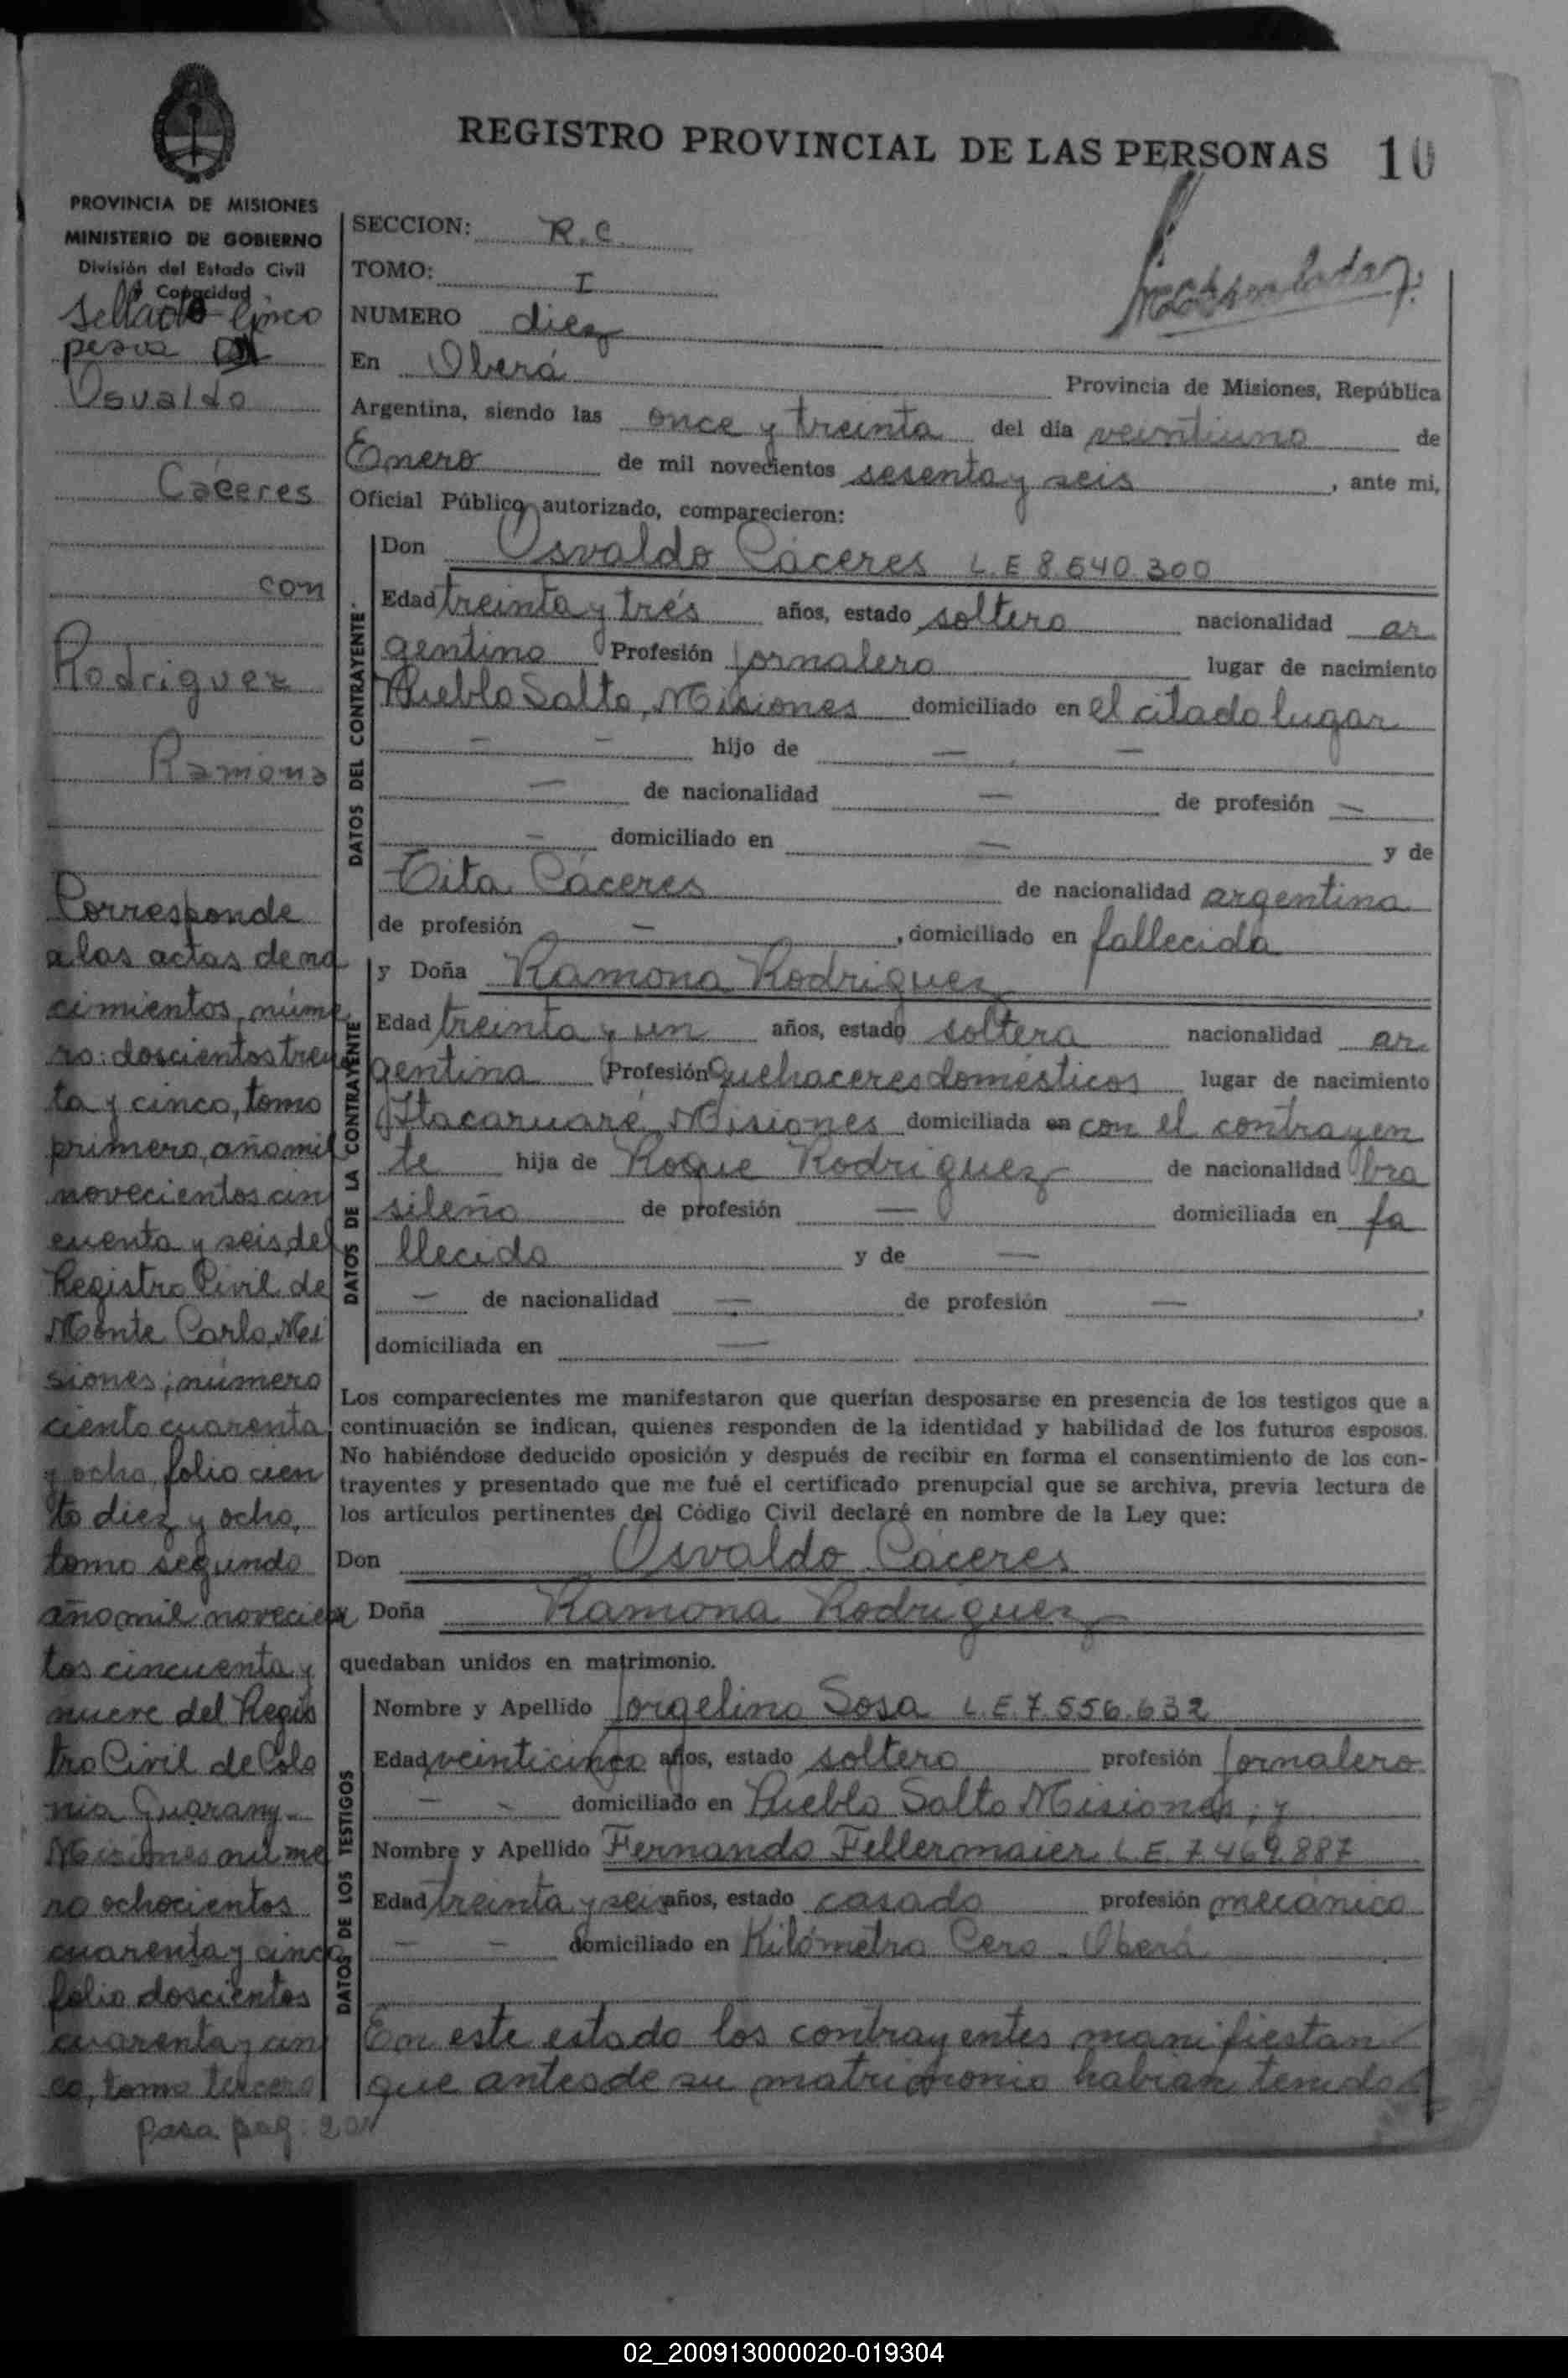 REGISTRO PROVINCIAL DE LAS PERSONAS 10
PROVINCIA DE MISIONES
MINISTERIO DE GOBIERNO
División del Estado Civil
y Capacidad
Sellado cinco
pesos
Osvaldo
Cáceres
con
Rodriguez
Ramona
Corresponde
a las actas de na
cimientos, núme
ro: doscientos trein
ta y cinco, tomo
primero, año mil
novecientos cin
cuenta y seis, del
Registro Civil de
Monte Carlo, Mi
siones; número
ciento cuarenta
y ocho, folio cien
to diez y ocho,
tomo segundo
año mil novecien
tos cincuenta y
nueve del Regis
tro Civil de Colo
nia Guarany-
Misiones núme
ro ochocientos
cuarenta y cinco
folio doscientos
cuarenta y cin
co, tomo tercero
pasa pag. 201
SECCION: R.C.
TOMO: I
NUMERO diez
En Oberá Provincia de Misiones, República
Argentina, siendo las once y treinta del día veintiuno de
Enero de mil novecientos sesenta y seis, ante mi,
Oficial Público autorizado, comparecieron:
DATOS DEL CONTRAYENTE
Don Osvaldo Cáceres L.E 8.540.300
Edad treinta y trés años, estado soltero nacionalidad ar
gentino Profesión jornalero lugar de nacimiento
Pueblo Salto, Misiones domiciliado en el citado lugar
— — hijo de — —
— de nacionalidad — de profesión —
— domiciliado en — y de
Tita Cáceres de nacionalidad argentina
de profesión —, domiciliado en fallecida
DATOS DE LA CONTRAYENTE
y Doña Ramona Rodriguez
Edad treinta y un años, estado soltera nacionalidad ar
gentina Profesión Quehaceres domésticos lugar de nacimiento
Itacaruaré, Misiones domiciliada en con el contrayen
te hija de Roque Rodriguez de nacionalidad bra
sileño de profesión — domiciliada en fa
llecido y de —
— de nacionalidad — de profesión —,
domiciliada en —
Los comparecientes me manifestaron que querían desposarse en presencia de los testigos que a
continuación se indican, quienes responden de la identidad y habilidad de los futuros esposos.
No habiéndose deducido oposición y después de recibir en forma el consentimiento de los con-
trayentes y presentado que me fué el certificado prenupcial que se archiva, previa lectura de
los artículos pertinentes del Código Civil declaré en nombre de la Ley que:
Don Osvaldo Cáceres
Doña Ramona Rodriguez
quedaban unidos en matrimonio.
DATOS DE LOS TESTIGOS
Nombre y Apellido Jorgelino Sosa L.E.7.556.632
Edad veinticinco años, estado soltero profesión jornalero
— — domiciliado en Pueblo Salto Misiones, y
Nombre y Apellido Fernando Fellermaier L.E.7.469.887
Edad treinta y seis años, estado casado profesión mecánico
— — domiciliado en Kilómetro Cero - Oberá
En este estado los contrayentes manifiestan
que antes de su matrimonio habian tenido
02_200913000020-019304